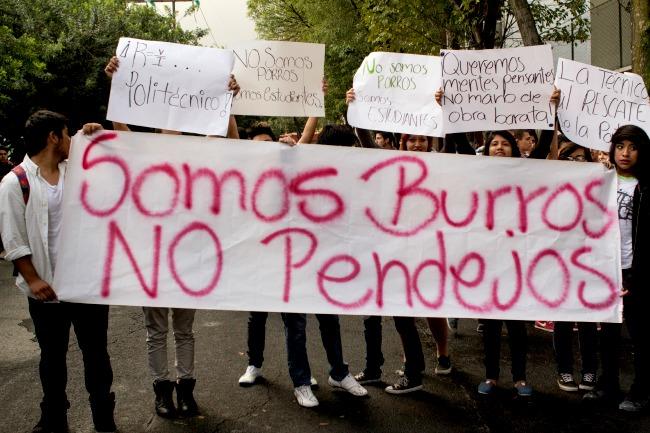 ¡AR-I....
Politécnico!
No Somos
PORROS
Somos estudiantes.
No somos
PORROS
Somos
ESTUDIANTES
Queremos
mentes pensantes
No marbo de
obra barata
LA Técnica
al RESCATE
de la Po
Somos Burros
NO Pendejos